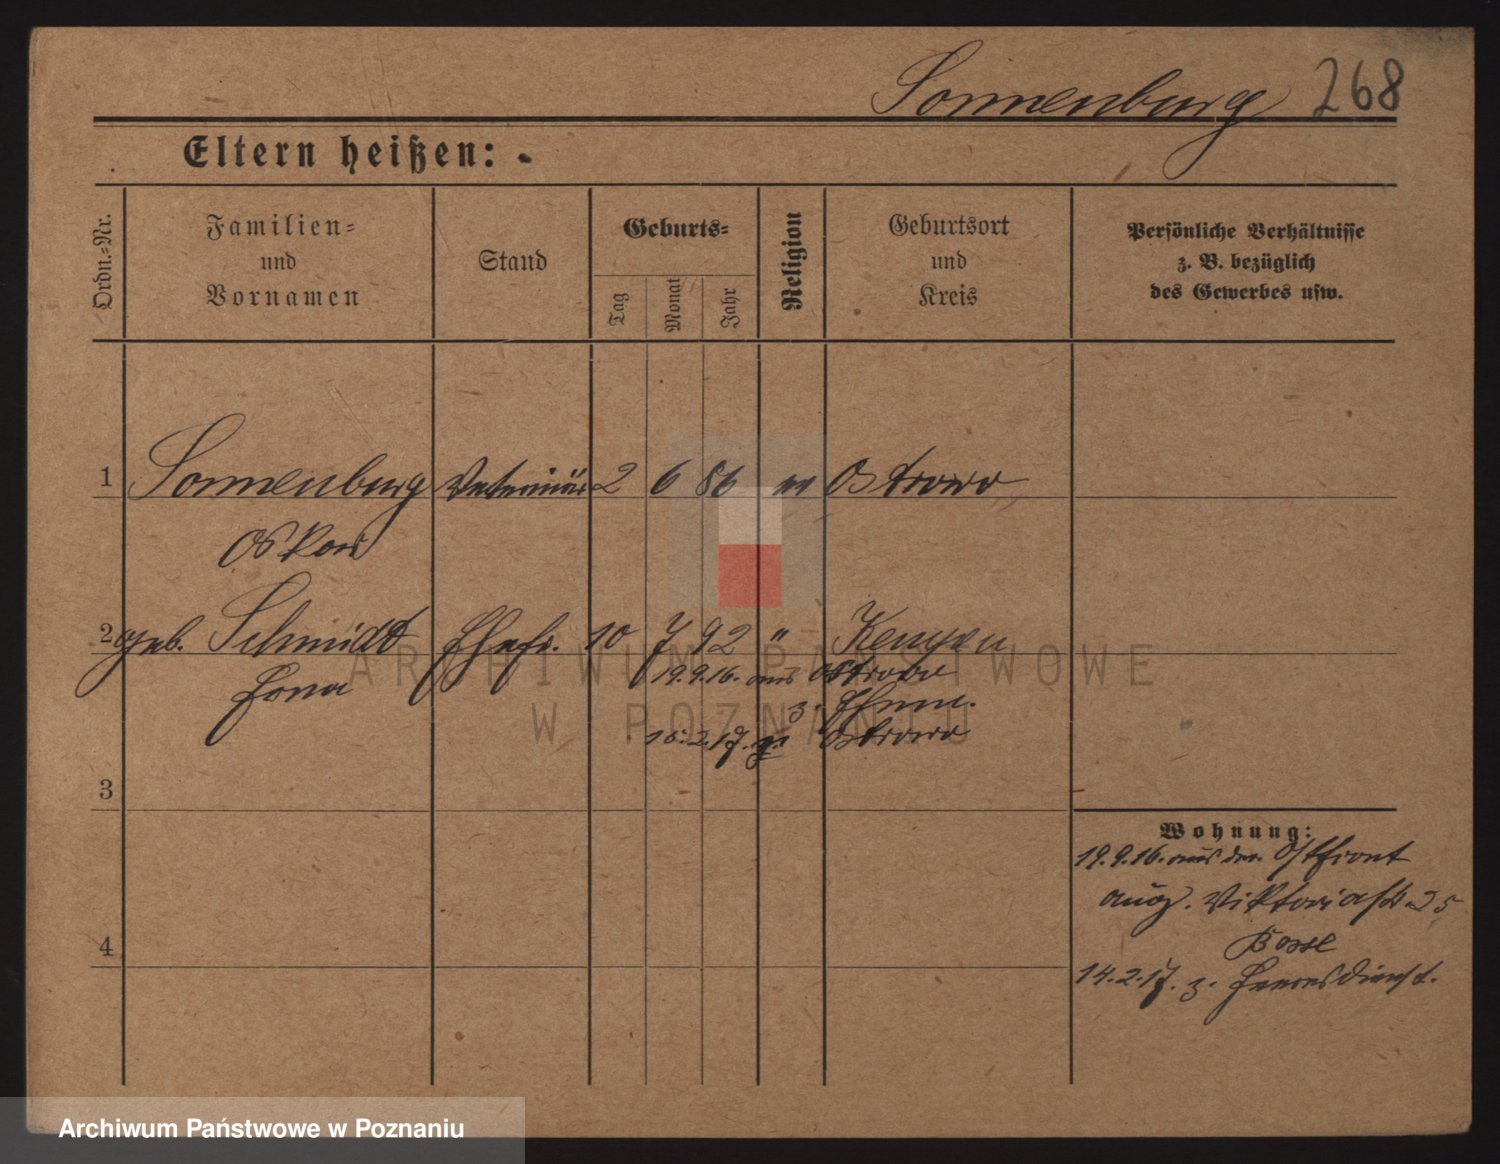 Sonnenburg 268
Eltern heißen:
Ordn.-Nr.
Familien- und Vornamen
Stand
Geburts-
Tag
Monat
Jahr
Religion
Geburtsort und Kreis
Persönliche Verhältnisse
z. B. bezüglich
des Gewerbes usw.
1 Sonnenburg Veterinär 2 6 86 ev Ostrowo
Oskar
2 geb. Schmidt Ehefr. 10 7 92 " Kempen
Erna 19.9.16. aus Ostrowo
z. Ehem.
15.2.17. Ostrowo
3
Wohnung:
19.9.16. aus der Ostfront
aug. Viktoriastr. 25
14.2.17. z. Heeresdienst.
4
ARCHIWUM PAŃSTWOWE
W POZNANIU
Archiwum Państwowe w Poznaniu